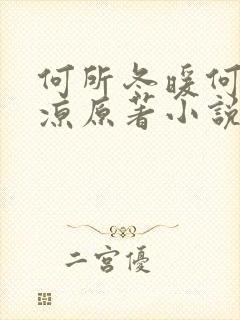 何所冬暖何
凉原著小說
二宮優